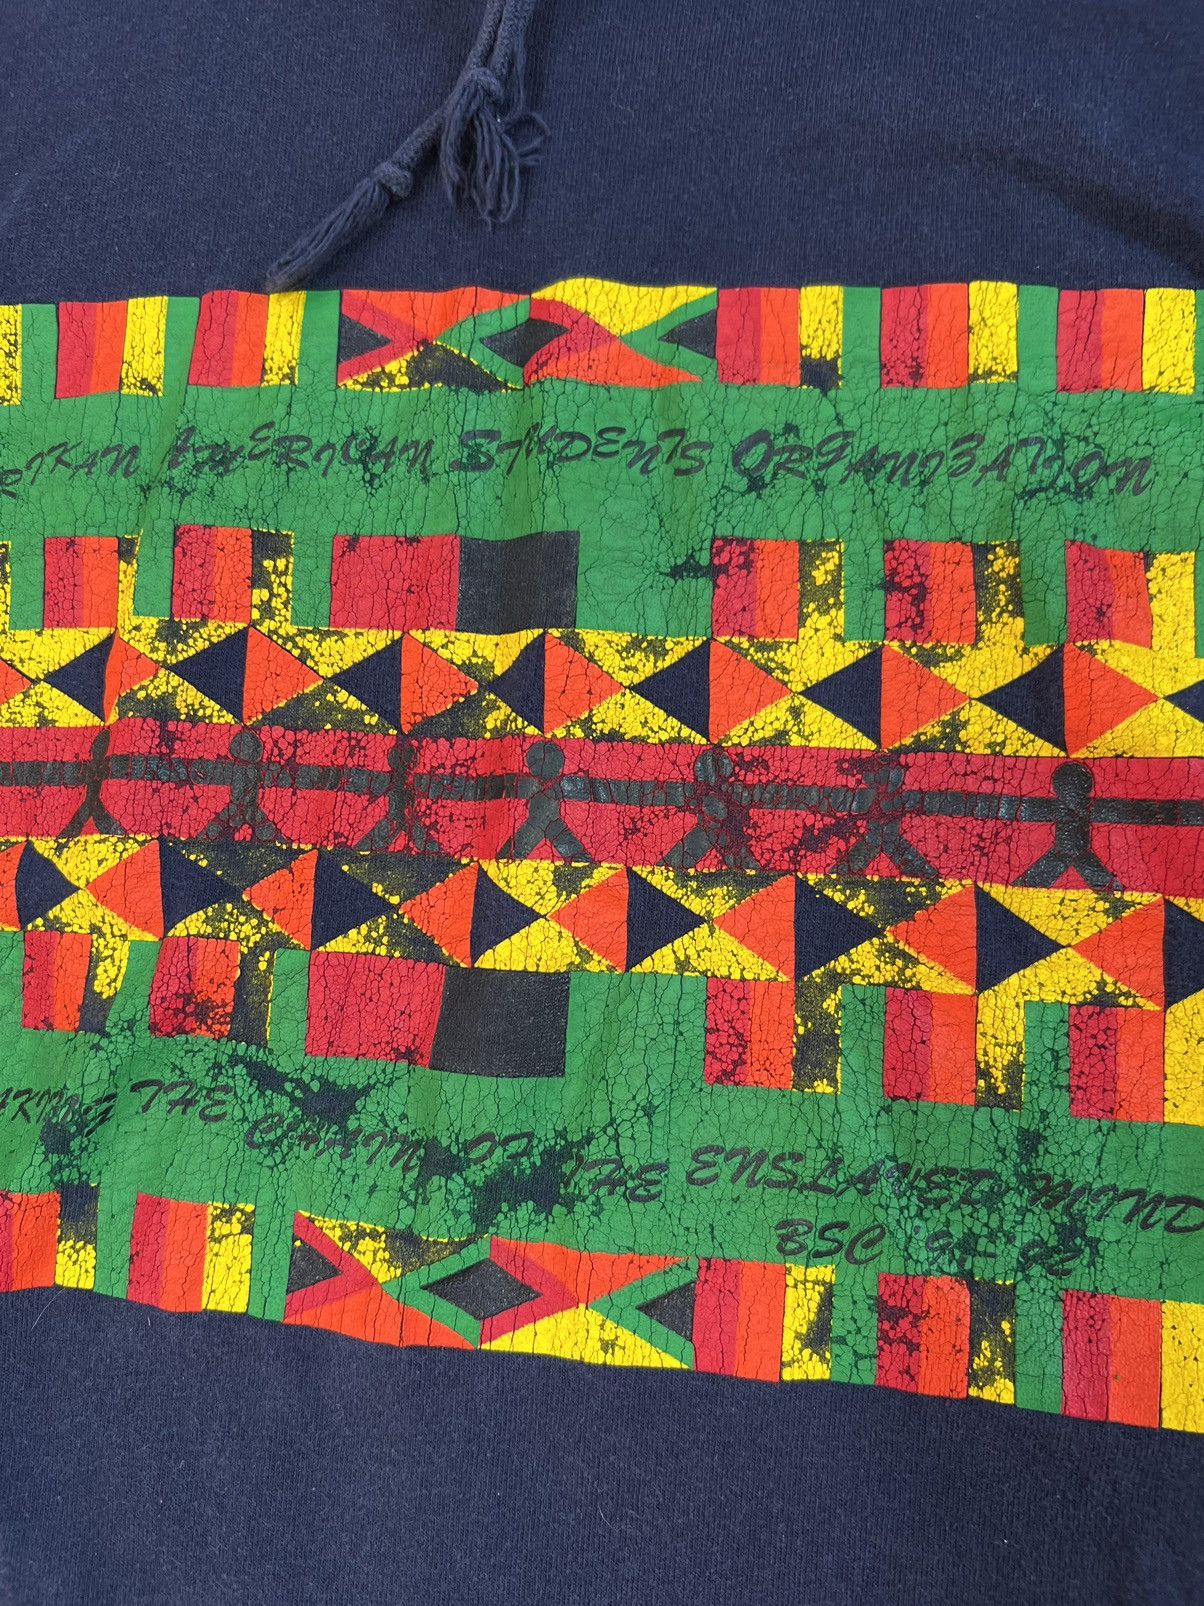 RIKAN AMERICAN STUDENTS ORGANIZATION
AKING THE CHAIN OF THE ENSLAVED MIND
BSC '91-'92